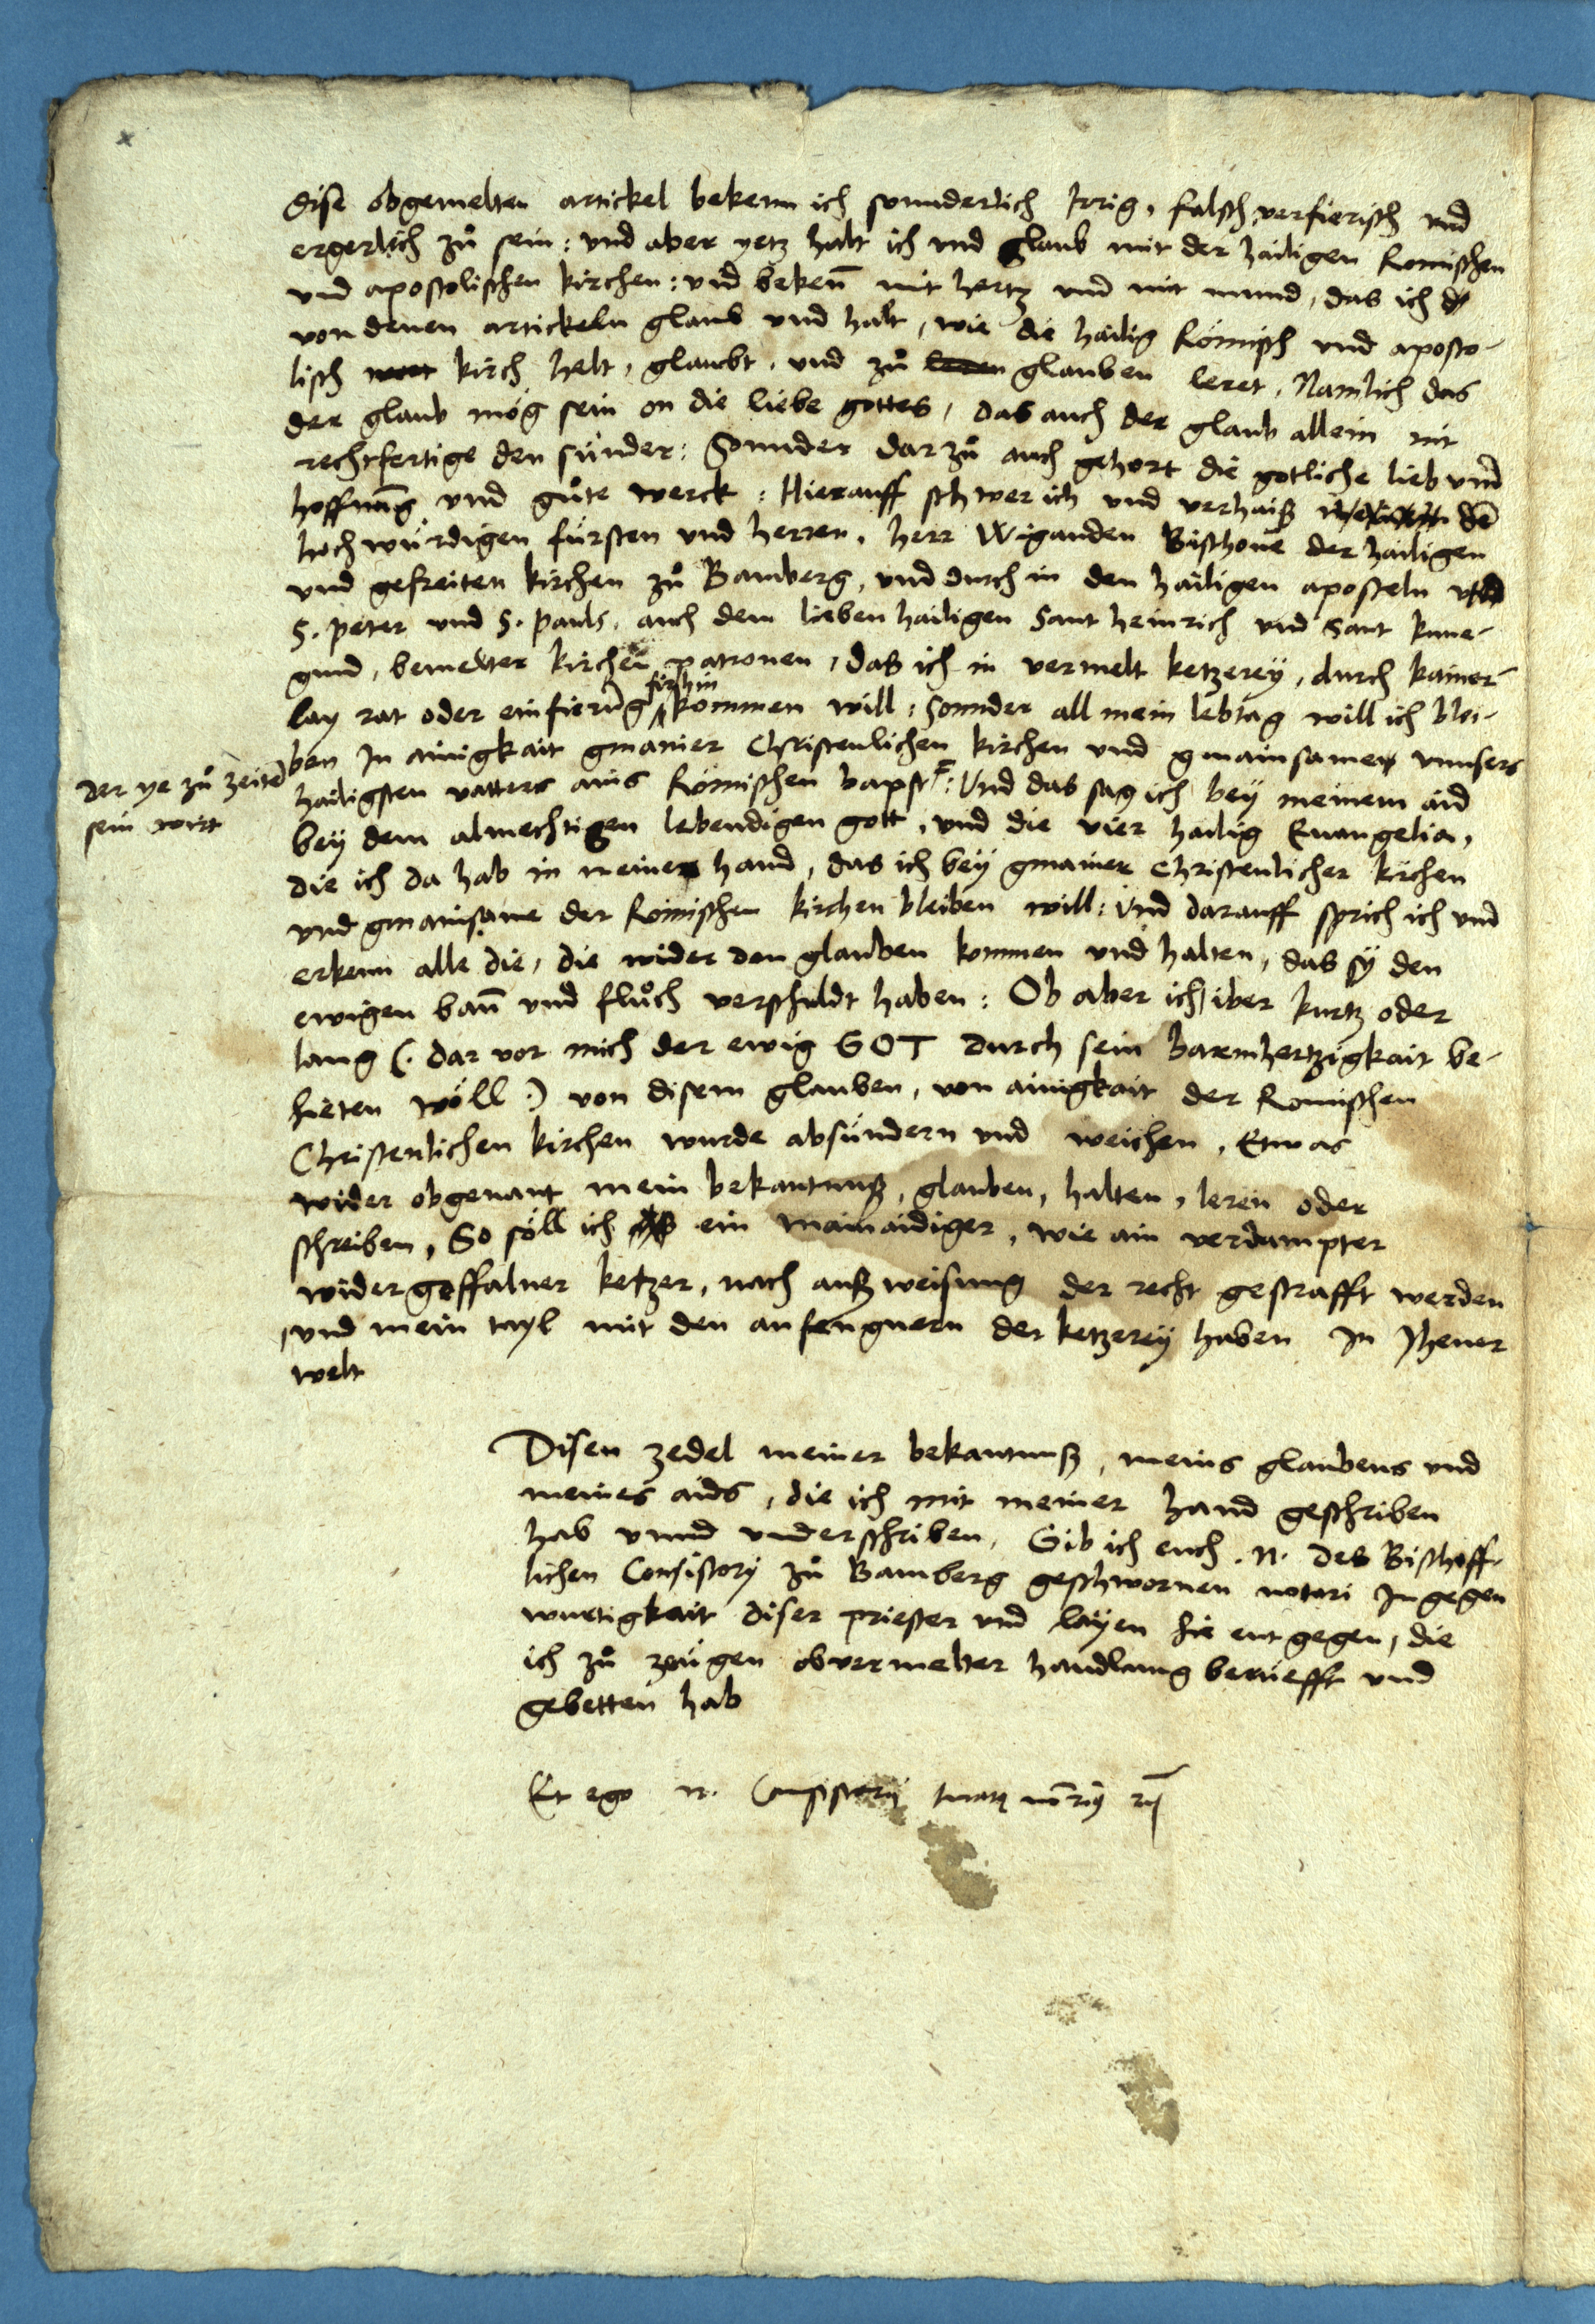 dise obgemelten artickel bekenn ich sonnderlich Irrig, falsch, verfierisch vnd
ergerlich zů sein: vnd aber yetz halt ich vnd glaub mit der hailigen Romischen
vnd apostolischen kirchen: vnd bekeñ mit hertz vnd mit mund, das ich
von denen artickeln glaub vnd halt, wie die hailig Römisch vnd aposto-
lisch kirch helt, glaubt, vnd zů leren glauben leret, Namlich das
der glaub mög sein on die liebe gottes, das auch der glaub allein nit
rechtfertige den sünder: Sonnder dar zů auch gehort die gotliche lieb vnnd
hoffnu̅g vnd gůte werck: Hierauff schwer ich vnd verhaiß de̅
hochwürdigen fürsten vnd herren, herr Wiganden Bischoue der hailigen
vnd gefreiten kirchen zů Bamberg, vnd durch in den hailigen aposteln
S. peter vnd S. pauls, auch dem lieben hailigen Sant heinrich vnd Sant kune-
gund, bemelter kirchen patronen, das ich in vermelt ketzerey, durch kainer-
lay rat oder einfieru̅g fürhin kommen will: Sonnder all mein lebtag will ich blei-
ben In ainigkait gmainer Christenlichen kirchen vnd gmainsame vnnsers
hailigsten vatters ains Römischen bapst: Vnd das sag ich bey meinem aid
der ye zů zeite̅
sein wirt
bey dem almechtigen lebendigen gott, vnd die vier hailig Euangelia,
die ich da hab in meiner hand, das ich bey gmainer Christenlicher kirchen
vnd gmainsame der Römischen kirchen bleiben will: Vnd darauff sprich ich vnd
erkenn alle die, die wider den glauben kommen vnd halten, das sy den
ewigen bañ vnd flůch verschuldt haben: Ob aber ich iber kurtz oder
lang (. dar vor mich der ewig GOT durch sein barmhertzigkait be-
hieten wöll .) von disem glauben, von ainigkait der Romischen
Christenlichen kirchen wurde absündern vnd weichen, Etwas
wider obgenant mein bekantnuß, glauben, halten, leren oder
schreiben, So söll ich ein mainaidiger, wie ain verdampter
widergeffalner ketzer, nach außweisung der recht gestrafft werden
vnd mein tayl mit den anfengnern der ketzerey haben In Jhener
welt
Disen zedel meiner bekantnuß, meins glaubens vnd
meines aids, die ich mit meiner hand geschriben
hab vnnd vnderschriben, Gib ich euch .N. des Bischoff-
lichen Consistory zů Bamberg geschwornen notari In gegen
wurtigkait diser priester vnd layen hie entgegen, die
ich zů zeügen obuermelter handlung berüefft vnd
gebetten hab
Et ego N. Consistorij